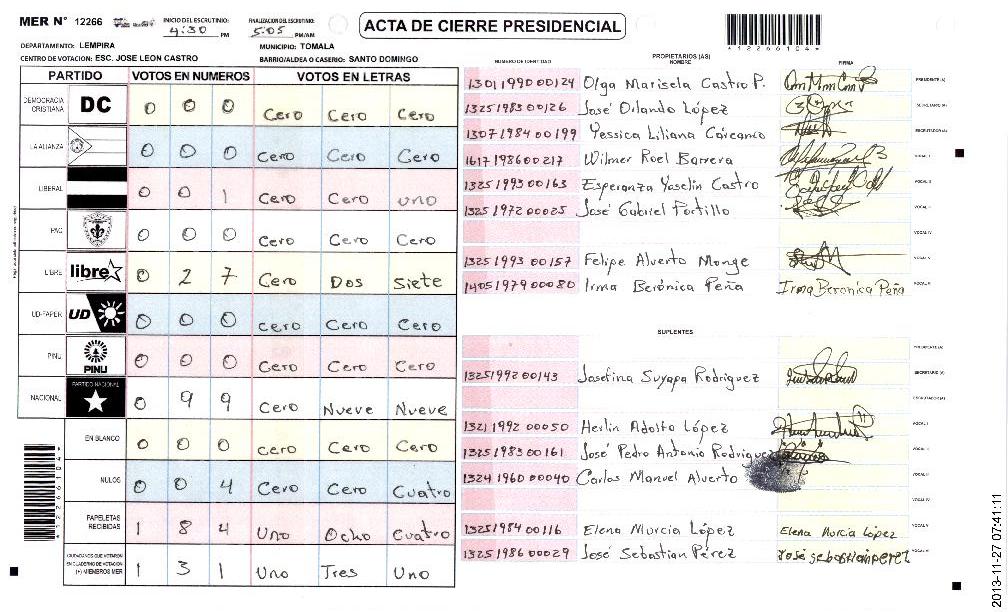 MER N° 12266
INICIO DEL ESCRUTINIO: 4:30 PM
FINALIZACION DEL ESCRUTINIO: 5:05 PM/AM
ACTA DE CIERRE PRESIDENCIAL
*12266104*
DEPARTAMENTO: LEMPIRA
MUNICIPIO: TOMALA
CENTRO DE VOTACION: ESC. JOSE LEON CASTRO
BARRIO/ALDEA O CASERIO: SANTO DOMINGO
PARTIDO VOTOS EN NUMEROS VOTOS EN LETRAS
DEMOCRACIA CRISTIANA DC 0 0 0 Cero Cero Cero
LA ALIANZA 0 0 0 Cero Cero Cero
LIBERAL 0 0 1 Cero Cero uno
PAC 0 0 0 Cero Cero Cero
LIBRE libre 0 2 7 Cero Dos Siete
UD-FAPER UD 0 0 0 Cero Cero Cero
PINU PINU 0 0 0 Cero Cero Cero
NACIONAL PARTIDO NACIONAL 0 9 9 Cero Nueve Nueve
EN BLANCO 0 0 0 Cero Cero Cero
NULOS 0 0 4 Cero Cero Cuatro
PAPELETAS RECIBIDAS 1 8 4 Uno Ocho Cuatro
CIUDADANOS QUE VOTARON EN CUADERNO DE VOTACION (+) MIEMBROS MER 1 3 1 Uno Tres Uno
NUMERO DE IDENTIDAD PROPIETARIOS (AS) NOMBRE FIRMA
1301 1990 00124 Olga Marisela Castro P. PRESIDENTE (A)
1325 1983 00126 José Orlando López SECRETARIO (A)
1307 1984 00199 Yessica Liliana Cárcamo ESCRUTADOR (A)
1617 1986 00217 Wilmer Roel Barrera VOCAL I
1325 1993 00163 Esperanza Yoselin Castro VOCAL II
1325 1972 00025 José Gabriel Portillo VOCAL III
VOCAL IV
1325 1993 00157 Felipe Alverto Monge VOCAL V
1405 1979 00080 Irma Berónica Peña Irma Beronica Peña
SUPLENTES
PRESIDENTE (A)
1325 1992 00143 Josefina Suyapa Rodriguez SECRETARIO (A)
ESCRUTADOR (A)
1321 1992 00050 Herlin Adolfo López VOCAL I
1325 1983 00161 José Pedro Antonio Rodriguez VOCAL II
1324 1960 00040 Carlos Manuel Alverto VOCAL III
VOCAL IV
1325 1984 00116 Elena Murcia López Elena Murcia López VOCAL V
1325 1986 00029 José Sebastian Pérez José Sebastian perez
2013-11-27 07:41:11